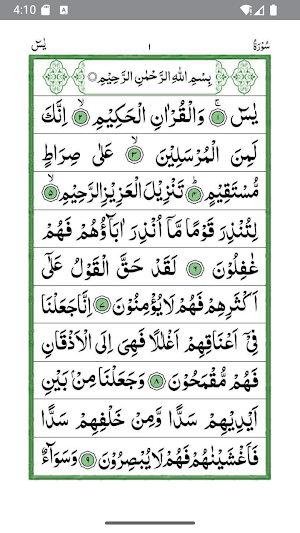 4:10
سُوْرَةُ ١ يٰسٓ
بِسْمِ اللّٰهِ الرَّحْمٰنِ الرَّحِيْمِ
يٰسٓ ۚ﴿۱﴾ وَالْقُرْاٰنِ الْحَكِيْمِ ۙ﴿۲﴾ اِنَّكَ
لَمِنَ الْمُرْسَلِيْنَ ۙ﴿۳﴾ عَلٰى صِرَاطٍ
مُّسْتَقِيْمٍ ؕ﴿۴﴾ تَنْزِيْلَ الْعَزِيْزِ الرَّحِيْمِ ۙ﴿۵﴾
لِتُنْذِرَ قَوْمًا مَّاۤ اُنْذِرَ اٰبَآؤُهُمْ فَهُمْ
غٰفِلُوْنَ ﴿۶﴾ لَقَدْ حَقَّ الْقَوْلُ عَلٰٓى
اَكْثَرِهِمْ فَهُمْ لَا يُؤْمِنُوْنَ ﴿۷﴾ اِنَّا جَعَلْنَا
فِيْۤ اَعْنَاقِهِمْ اَغْلٰلًا فَهِيَ اِلَى الْاَذْقَانِ
فَهُمْ مُّقْمَحُوْنَ ﴿۸﴾ وَجَعَلْنَا مِنْۢ بَيْنِ
اَيْدِيْهِمْ سَدًّا وَّمِنْ خَلْفِهِمْ سَدًّا
فَاَغْشَيْنٰهُمْ فَهُمْ لَا يُبْصِرُوْنَ ﴿۹﴾ وَسَوَآءٌ